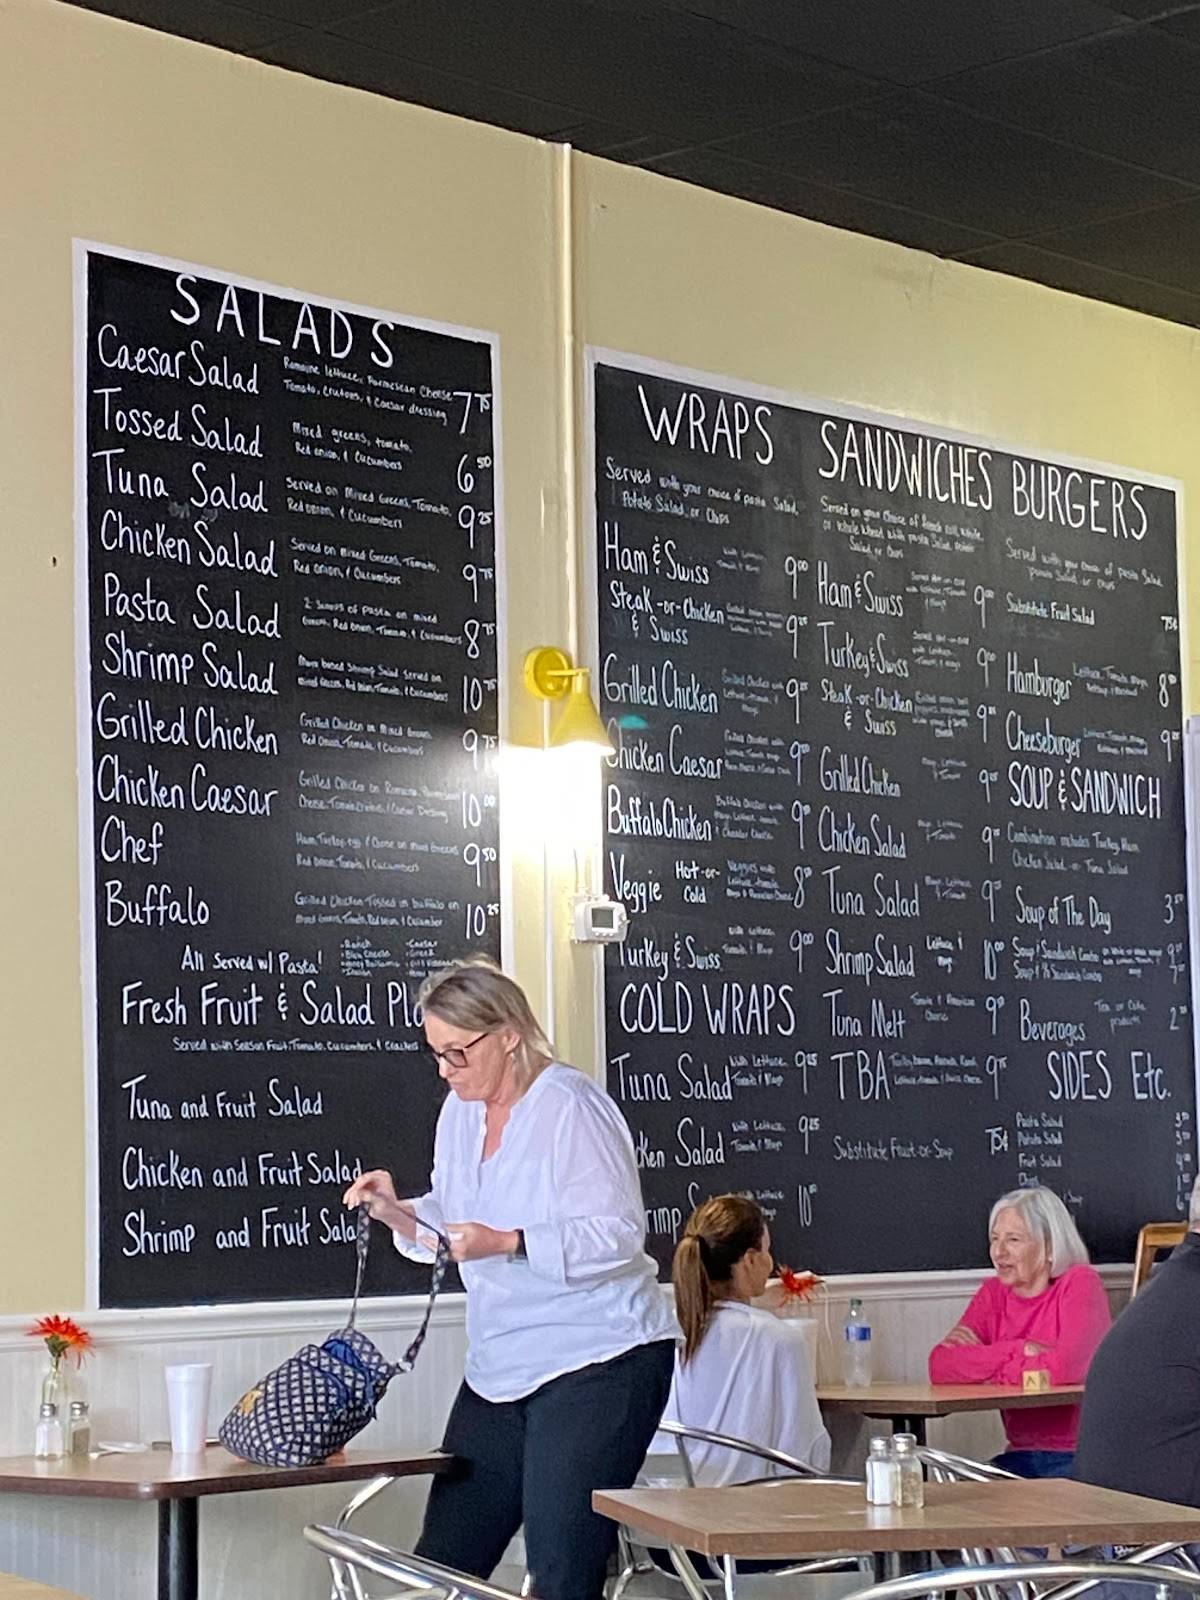 SALADS
Caesar Salad Romaine lettuce, Parmesean Cheese 7 75
Tomato, Crutons, & Caesar dressing
Tossed Salad Mixed greens, tomato, 6 50
Red onion, & Cucumbers
Tuna Salad Served on Mixed Greens, Tomato, 9 25
Red onion, & Cucumbers
Chicken Salad Served on Mixed Greens, Tomato, 9 75
Red Onion, & Cucumbers
Pasta Salad 2 Scoops of Pasta on mixed 8 75
Red Onion, Tomato, & Cucumbers
Shrimp Salad Shrimp Salad Served on 10 75
Mixed Greens, Red Onion, Tomato, & Cucumbers
Grilled Chicken Grilled Chicken on Mixed Greens 9 75
Red Onion, Tomato, & Cucumbers
Chicken Caesar Grilled Chicken on Romaine, Parmesean 10 00
Cheese, Tomato, Crutons, & Caesar Dressing
Chef Ham, Turkey, egg & Cheese on Mixed Greens 9 50
Red Onion, Tomato, & Cucumbers
Buffalo Grilled Chicken Tossed in buffalo on 10 25
Mixed Greens, Tomato, Red onion, & Cucumber
All Served w/ Pasta!
Ranch Caesar
Bleu Cheese Greek
Italian
Fresh Fruit & Salad Pl
Served with Season Fruit, Tomato, Cucumbers, & Crackers
Tuna and Fruit Salad
Chicken and Fruit Salad
Shrimp and Fruit Sala
WRAPS
Served with your choice of pasta Salad,
Potato Salad, or Chips
Ham & Swiss With Lettuce, Tomato, & Mayo 9 00
Steak -or- Chicken & Swiss 9 25
Grilled Chicken Grilled Chicken with Lettuce, tomato, & Mayo 9 25
Chicken Caesar 9
Buffalo Chicken Buffalo Chicken with 9
Veggie Hot -or- Cold Veggies with Lettuce, tomato 8
Turkey & Swiss With Lettuce, Tomato, & Mayo 9 00
COLD WRAPS
Tuna Salad With Lettuce, Tomato & Mayo 9 25
cken Salad With Lettuce, Tomato, & Mayo 9 25
rimp With Lettuce 10
SANDWICHES
Served on your choice of french roll, white,
or whole wheat with pasta Salad, potato
Salad, or Chips
Ham & Swiss 9
Turkey & Swiss 9 00
Steak -or- Chicken & Swiss 9
Grilled Chicken Mayo, Lettuce & Tomato 9 25
Chicken Salad Mayo, Lettuce & Tomato 9
Tuna Salad Mayo, Lettuce & Tomato 9
Shrimp Salad Lettuce & Mayo 10 00
Tuna Melt Tomato & American Cheese 9
TBA 9 75
Substitute Fruit -or- Soup 75¢
BURGERS
Served with your choice of pasta Salad,
potato Salad, or Chips
Substitute Fruit Salad 75¢
Hamburger Lettuce, Tomato, Mayo, Ketchup & Mustard 8
Cheeseburger Lettuce, Tomato, Mayo, Ketchup & Mustard 9
SOUP & SANDWICH
Combination includes Turkey, Ham,
Chicken Salad, -or- Tuna Salad
Soup of The Day 3
Soup & Sandwich Combo 9
Soup & ½ Sandwich Combo 7
Beverages Tea or Coke products 2
SIDES Etc.
Pasta Salad 3
Potato Salad 3
Fruit Salad 4
Chips 1
Soup 6